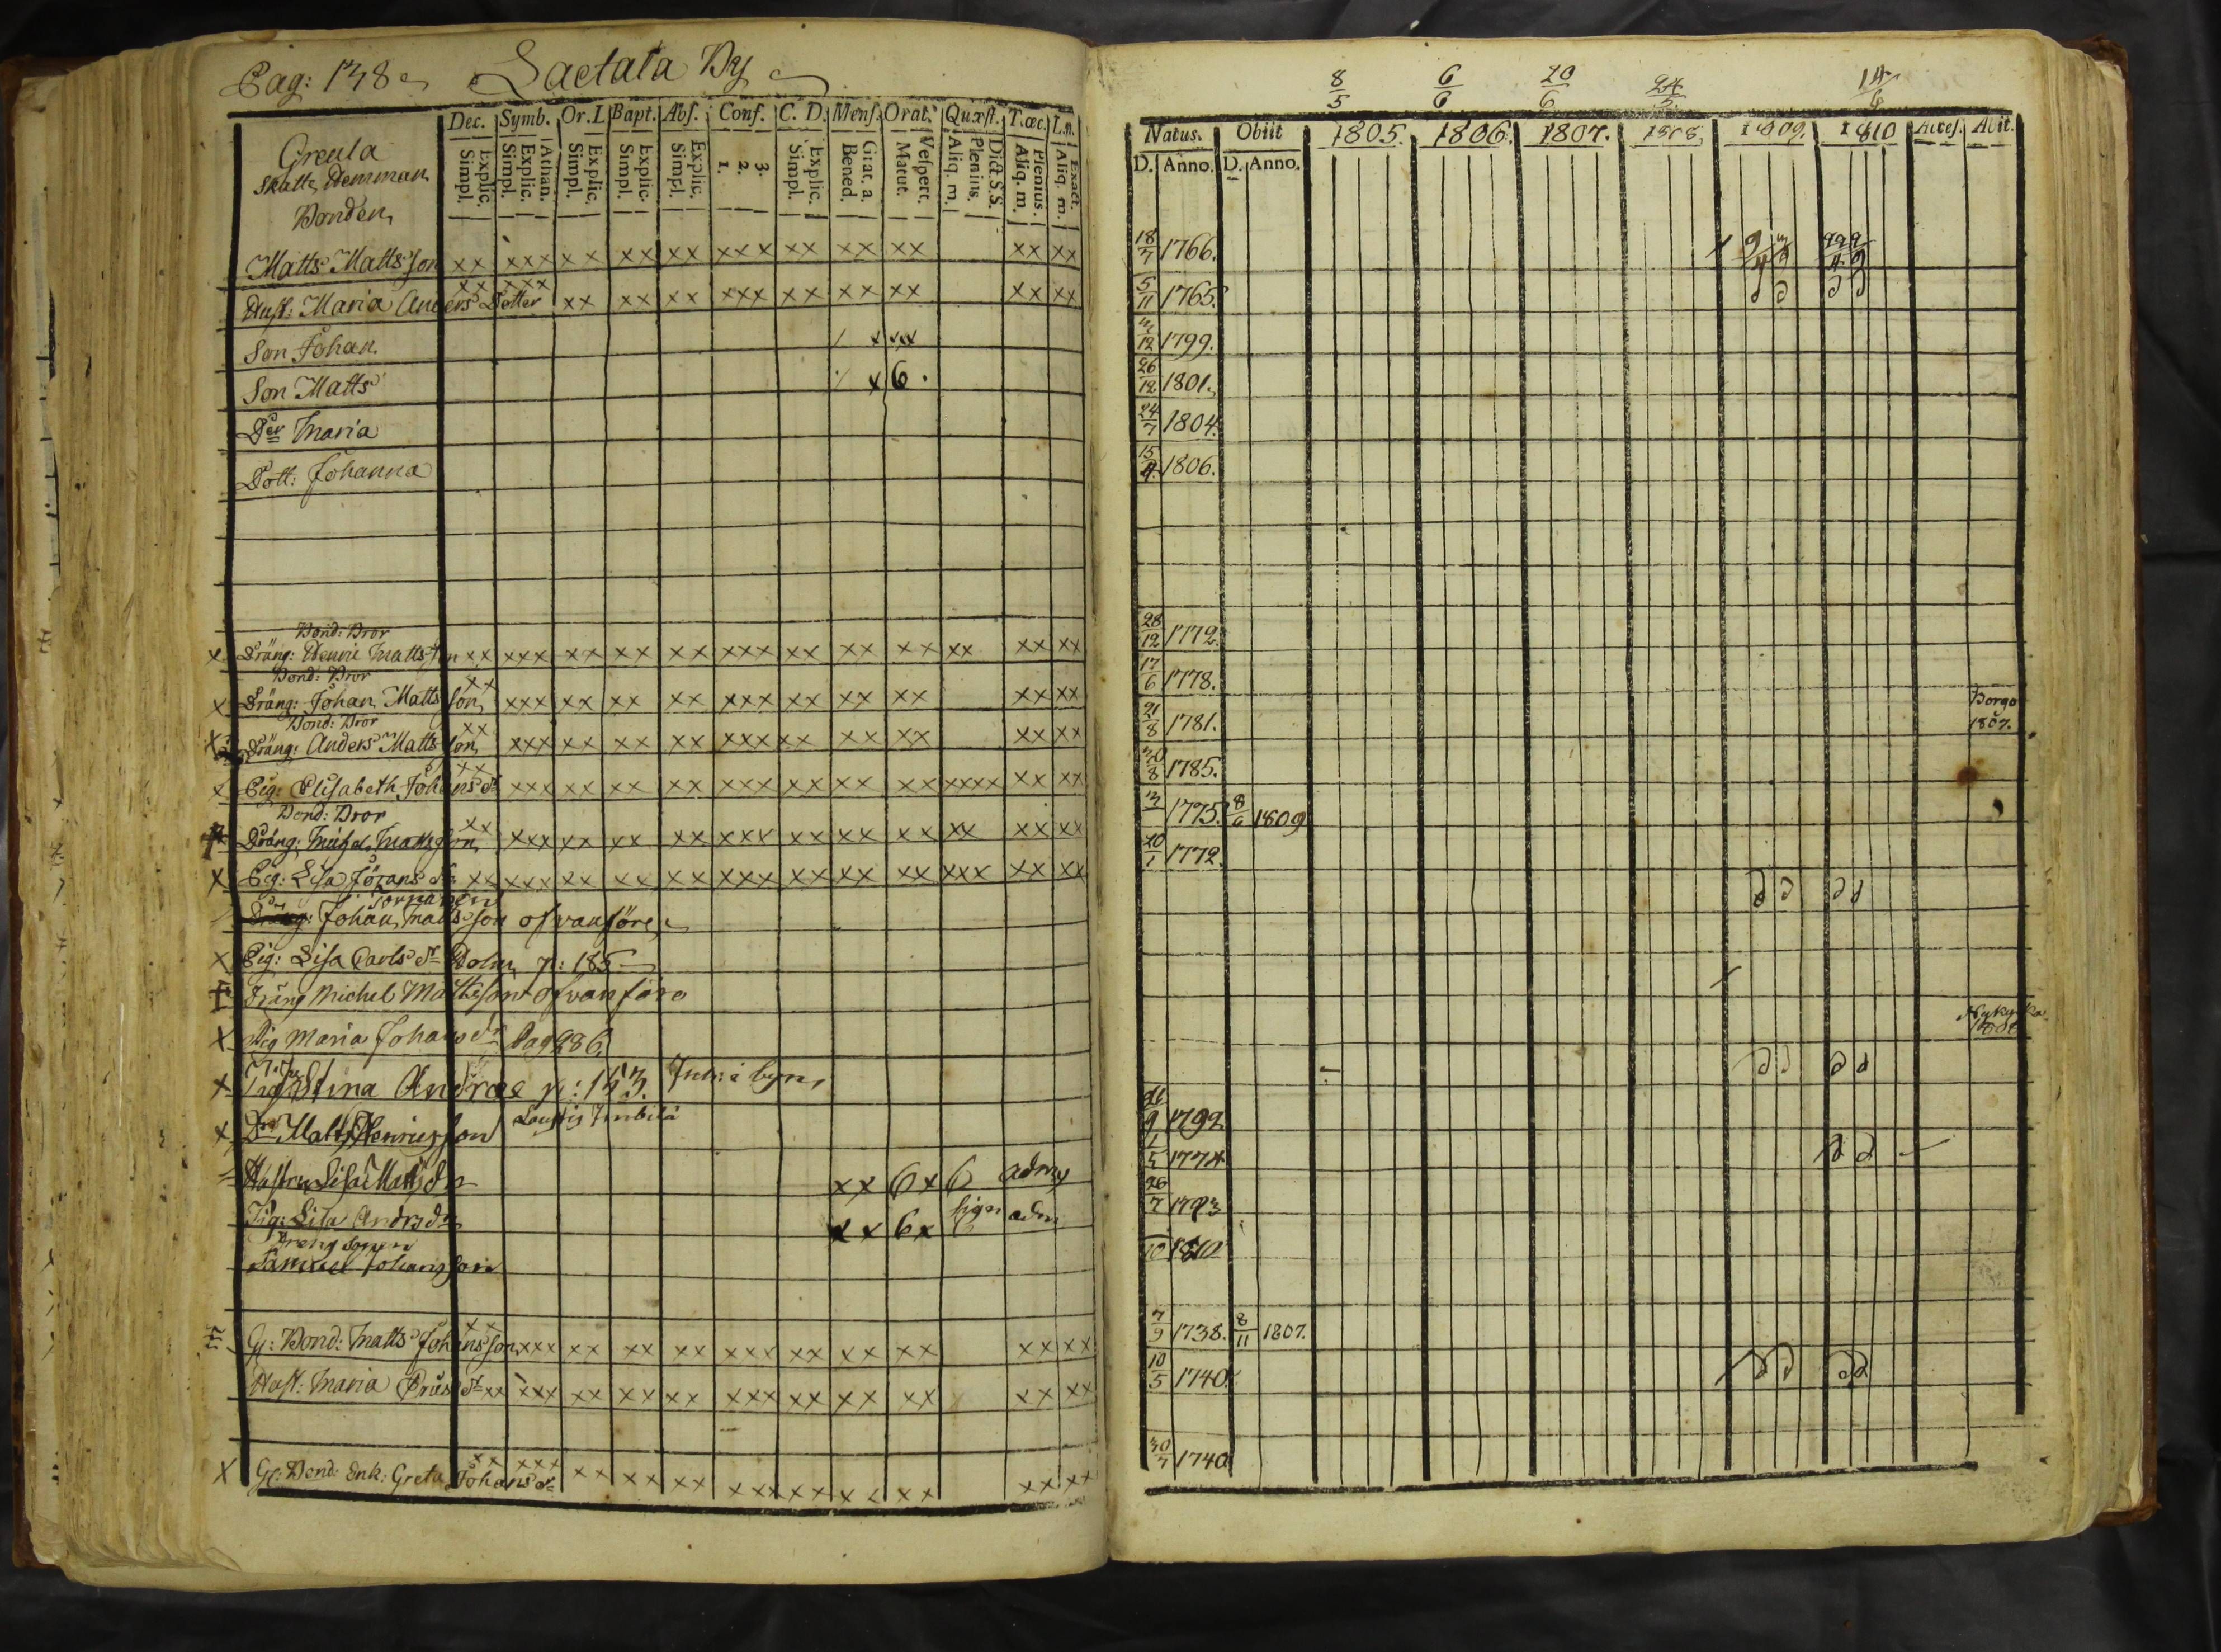 Pag: 138 Laetala By
Dec. Symb. Or. I. Bapt. Abs. Conf. C. D. Mens. Orat. Quæst. T. œc. L. n.
Explic. Simpl. Athan. Explic. Simpl. Explic. Simpl. Explic. Simpl. Explic. Simpl. 3. 2. 1. Explic. Simpl. Grat. a. Bened. Vespert. Matut. Dict. S.S. Plenius. Aliq. m. Plenius. Aliq. m. Exact. Aliq. m.
Greula
Skatte Hemman
Bonden
Matts Mattsson xx xxx xx xx xx xxx xx xx xx xx xx
Hust: Maria Anders Dotter xx xxx xx xx xx xxx xx xx xx xx xx
Son Johan x xxx
Son Matts x 6.
Dr Maria
Dott: Johanna
Bond: Bror
x Dräng: Henric Mattsson xx xxx xx xx xx xxx xx xx xx xx xx xx
Bond: Bror
x Dräng: Johan Mattsson xx xxx xx xx xx xxx xx xx xx xx xx
Bond: Bror
x Dräng: Anders Mattsson xx xxx xx xx xx xxx xx xx xx xx xx
x Pig: Elisabeth Johans dr xx xxx xx xx xx xxx xx xx xx xxxx xx xx
Bond: Bror
Dräng: Michel Mattsson xx xxx xx xx xx xxx xx xx xx xx xx xx
x Pig: Lisa Jörans dr xx xxx xx xx xx xxx xx xx xx xxx xx xx
Dräng: Johan Mattsson ofvanföre
x Pig: Lisa Carls dr Bolm p: 185
Dräng Michel Mattesson ofvanföre
x Pig Maria Johans dr Pag 286.
x Stina Andrae p: 153. Inh: i byn,
x Dr Matts Henricsson
Hustru Lisa Matts dr xx 6x6 adm
Pig: Lisa Andrs dr xx 6x adm
Dreng sonen
Samuel Johansson
Gl: Bond: Matts Johansson xx xxx xx xx xx xxx xx xx xx xx xx
Hust: Maria Prus dr xx xxx xx xx xx xxx xx xx xx xx xx
x Gl: Bond: Enk: Greta Johans dr xx xxx xx xx xx xxx xx xx xx xx xx
8/5 6/6 20/6 24/5 14/6
Natus. Obiit 1805. 1806. 1807. 1808. 1809. 1810 Acces. Abit.
D. Anno. D. Anno.
18/7 1766.
5/11 1765.
3/12 1799.
26/12 1801.
24/7 1804.
15/4 1806.
28/12 1772.
17/6 1778.
21/8 1781. Borgo 1807.
30/8 1785.
3 1775. 8/6 1809
20/1 1772.
Nykyrka
9 1792
1/5 1774
26/7
10 1810
7/9 1738. 8/11 1807.
10/5 1740.
30/7 1740